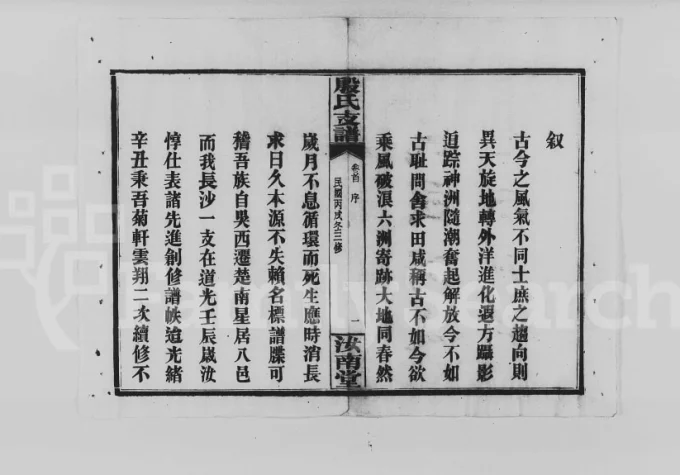 叙
古今之風氣不同士庶之趨向則
異天旋地轉外洋進化遐方躡影
追踪神洲隨潮奮起解放今不如
古耻問舍求田咸稱古不如今欲
乘風破浪六洲寄跡大地同春然
殷氏支譜
卷首 序
民國丙戌冬三修
一
汝南堂
歲月不息循環而死生應時消長
求日久本源不失賴名標譜牒可
稽吾族自吳西遷楚南星居八邑
而我長沙一支在道光壬辰歲汝
惇仕表諸先進創修譜帙迨光緒
辛丑秉吾菊軒雲翔二次續修不
FamilySearch